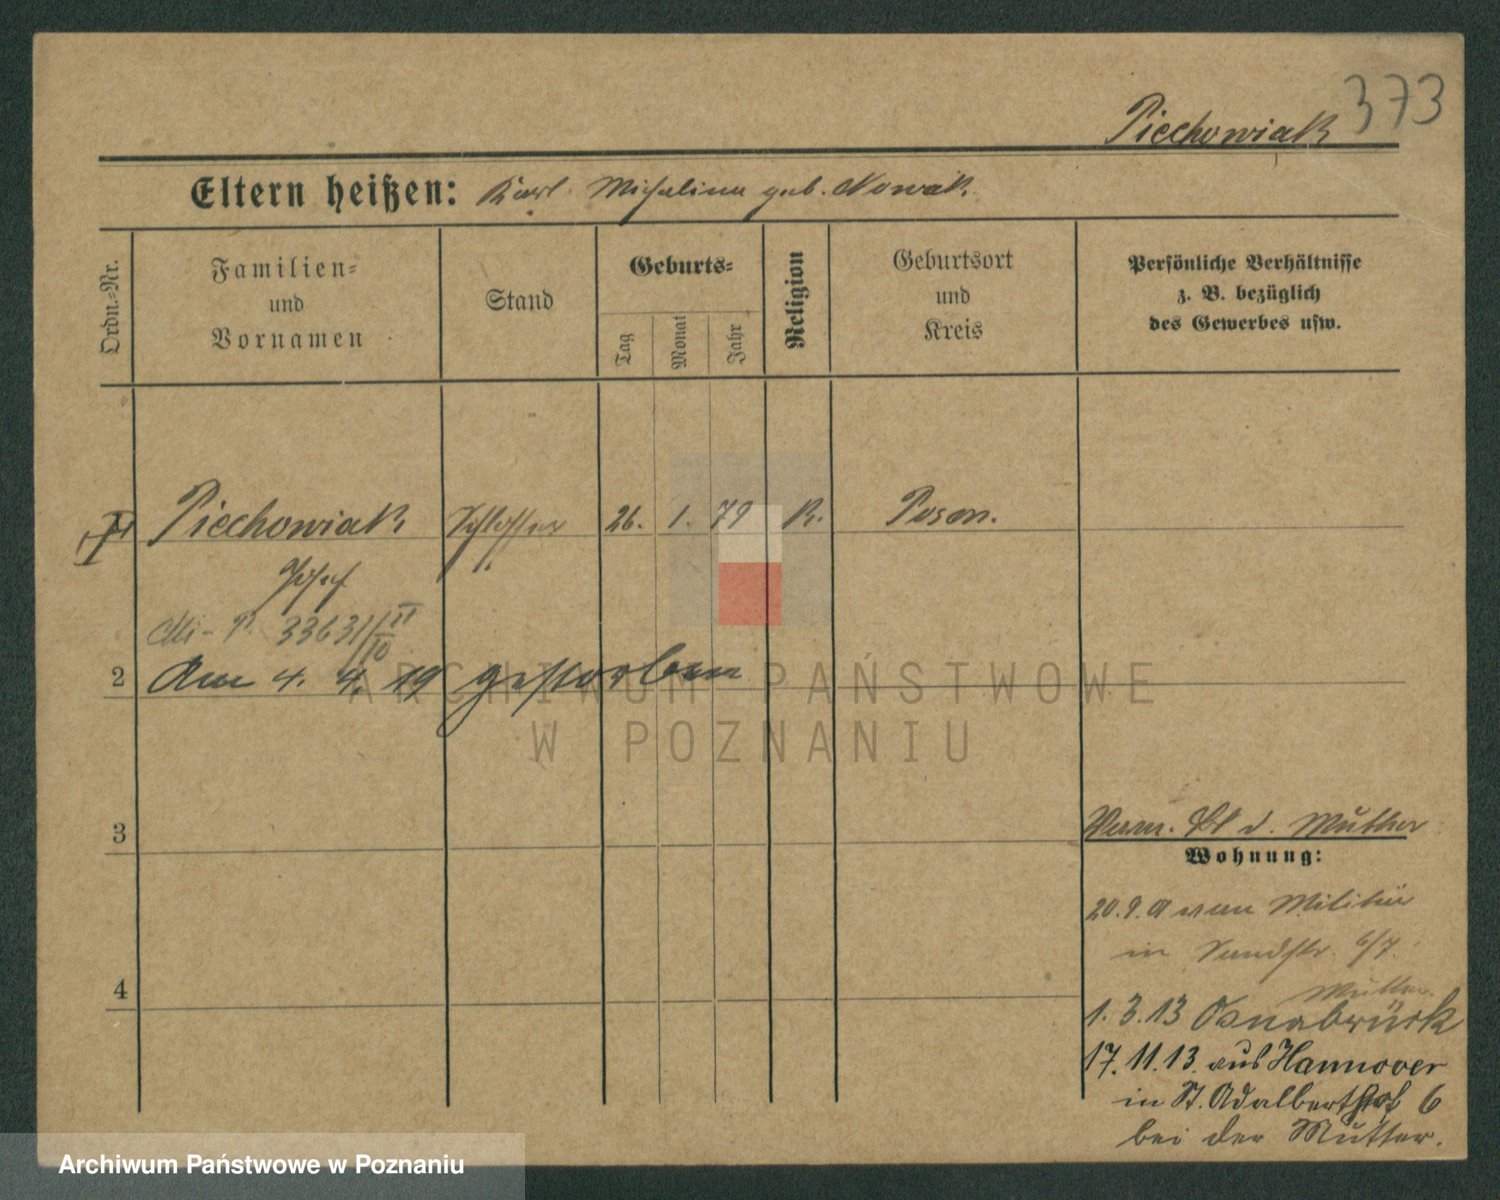 373
Piechowiak
Eltern heißen: Karl Michalina geb. Nowak.
Ordn.-Nr.
Familien-
und
Vornamen
Stand
Geburts-
Tag
Monat
Jahr
Religion
Geburtsort
und
Kreis
Persönliche Verhältnisse
z. B. bezüglich
des Gewerbes usw.
Piechowiak Schlosser 26. 1. 79 K. Posen.
Josef
33631
2 Am 4. 4. 19 gestorben
ARCHIWUM PAŃSTWOWE
W POZNANIU
3
d. Mutter
Wohnung:
20.9. vom Militär
in Sandstr. 6/7.
Mutter.
4
1. 3. 13 Osnabrück
17. 11. 13. aus Hannover
in St. Adalbertstr. 6
bei der Mutter.
Archiwum Państwowe w Poznaniu